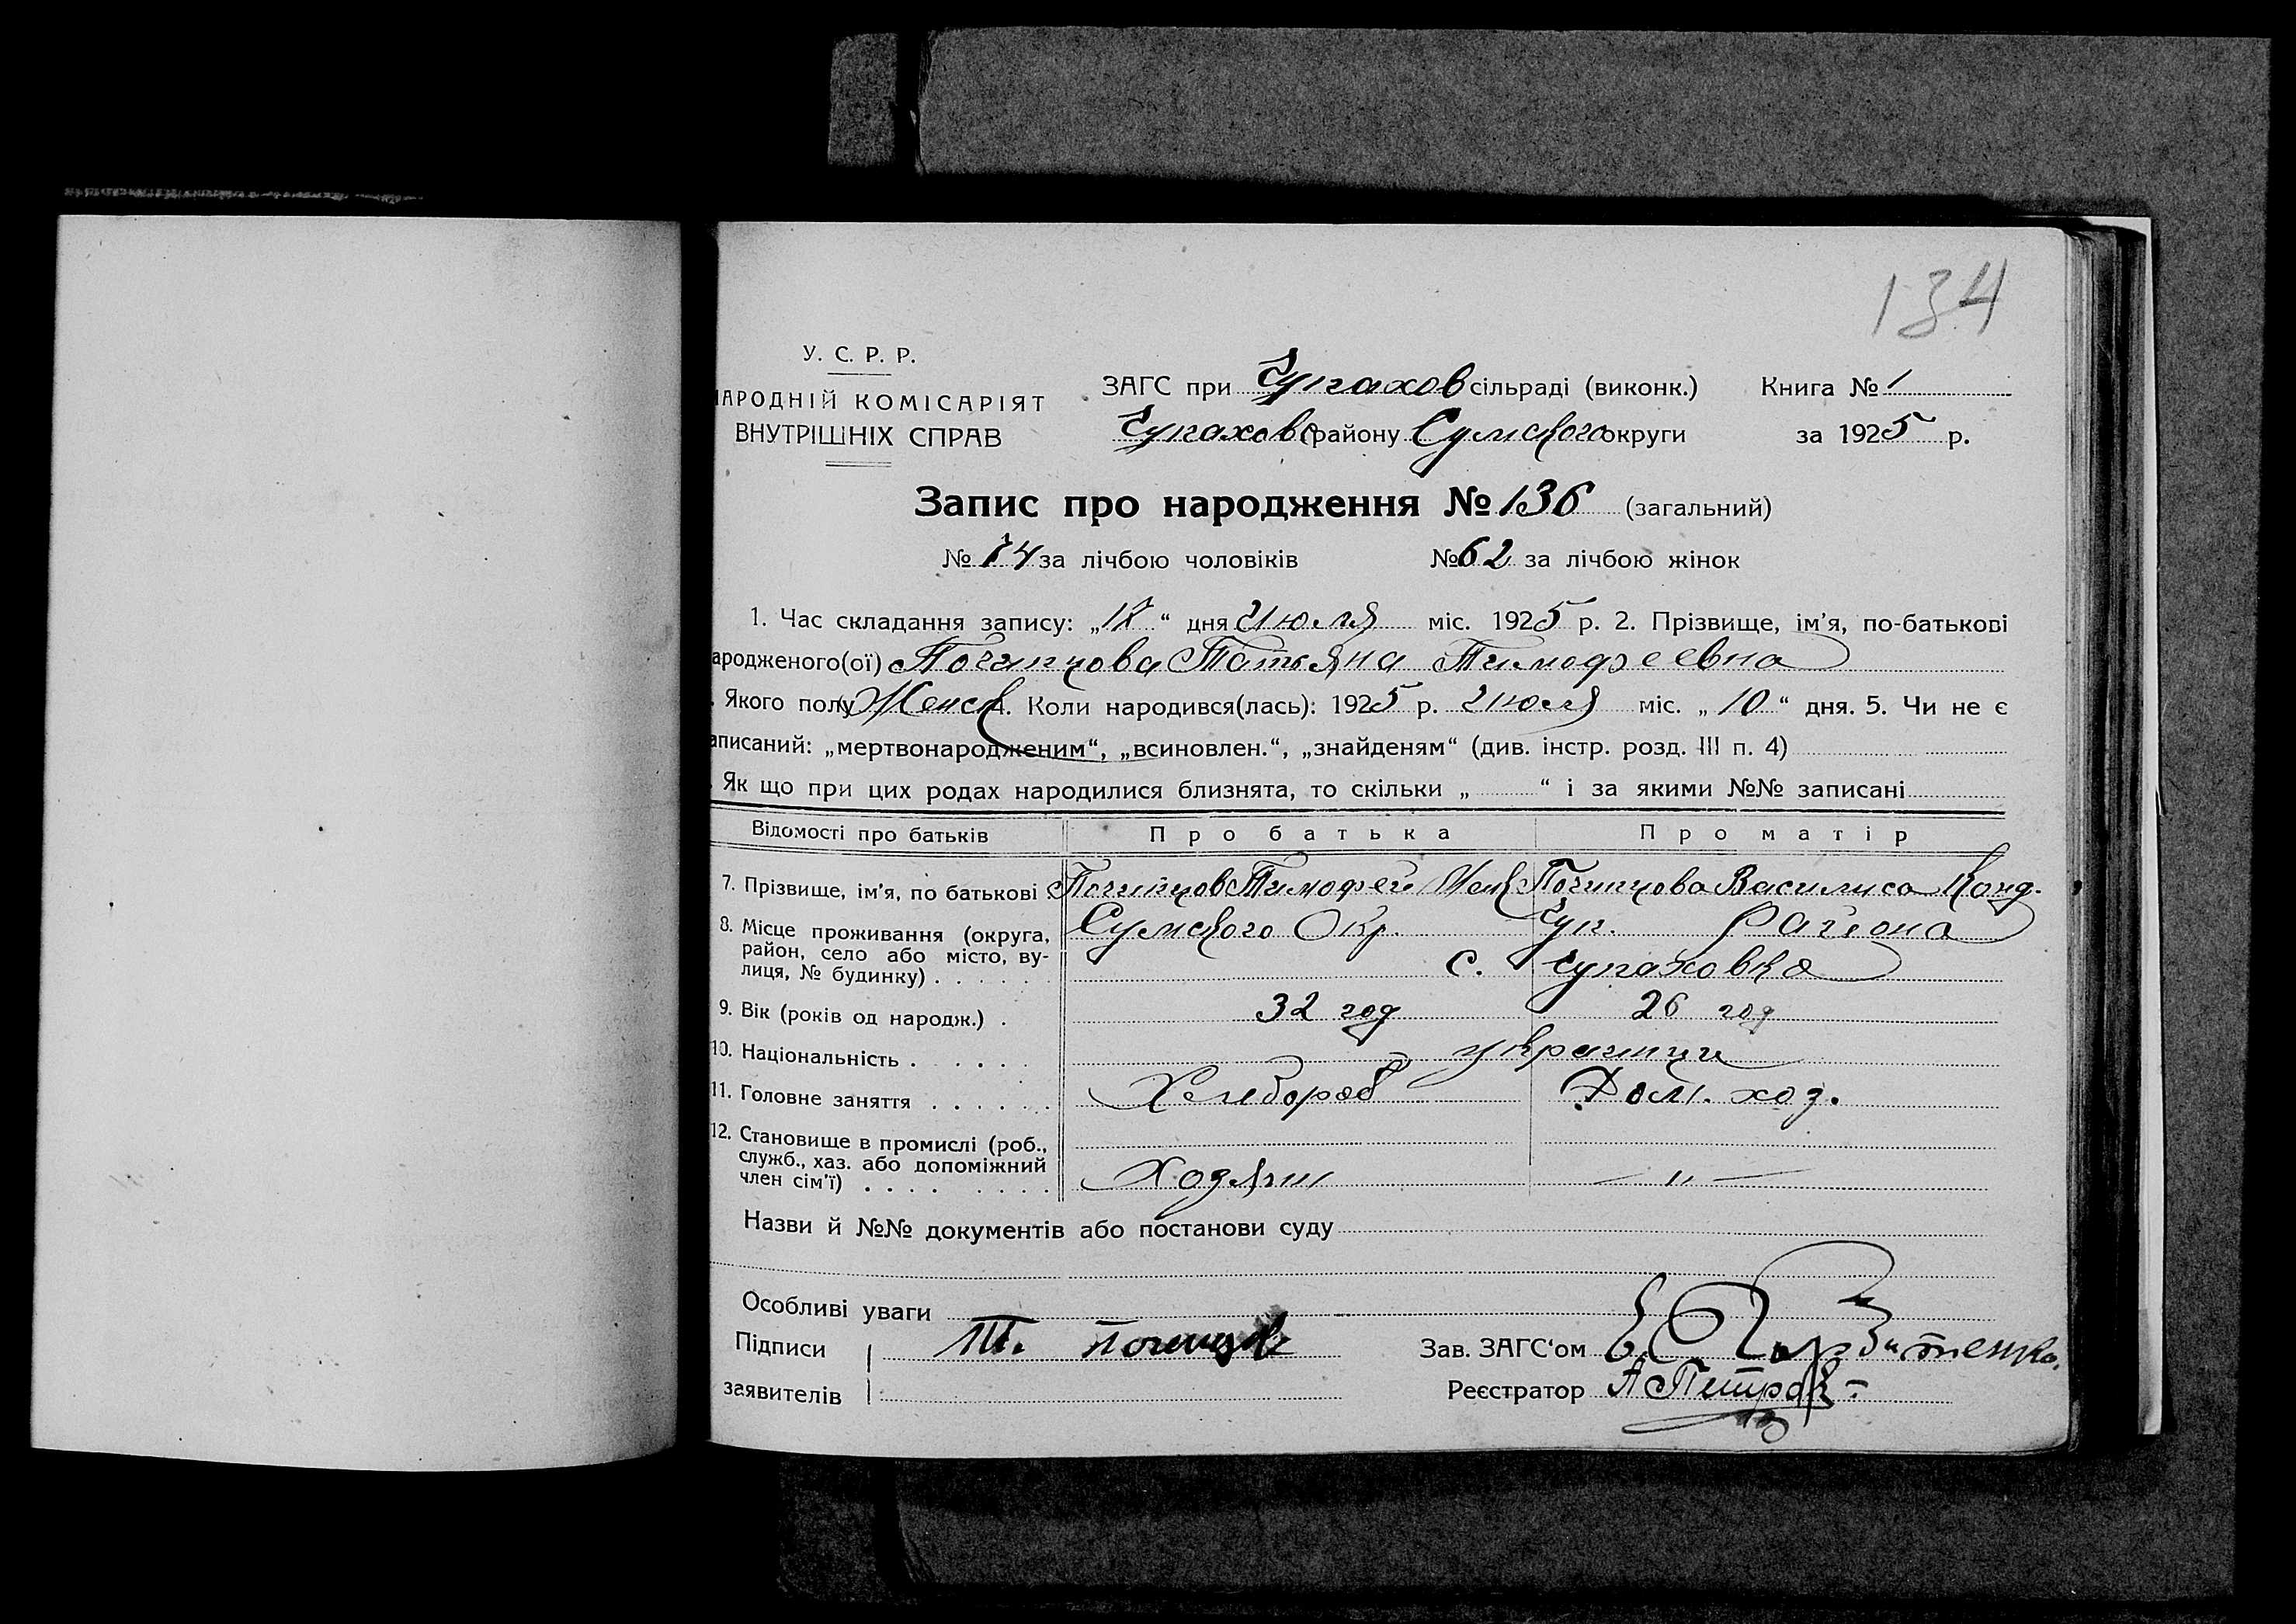 134
У. С. Р. Р.
АРОДНІЙ КОМІСАРІЯТ
ВНУТРІШНІХ СПРАВ
ЗАГС при Чупахов сільраді (виконк.) Книга № 1
Чупахов району Сумского округи за 1925 р.
Запис про народження № 136 (загальний)
№ 74 за лічбою чоловіків № 62 за лічбою жінок
1. Час складання запису: „ “ дня Июля міс. 1925 р. 2. Прізвище, ім'я, по-батькові
ародженого(ої) Почипцова Татьяна Тимофеевна
. Якого полу Женск 4. Коли народився(лась): 1925 р. Июля міс. „ 10 “ дня. 5. Чи не є
аписаний: „мертвонародженим“, „всиновлен.“, „знайденям“ (див. інстр. розд. III п. 4)
. Як що при цих родах народилися близнята, то скільки „ “ і за якими №№ записані
Відомості про батьків Про батька Про матір
7. Прізвище, ім'я, по батькові Почипцов Тимофей Почипцова Василиса Конд.
8. Місце проживання (округа, Сумского Окр. Чуп. Района
район, село або місто, ву-
лиця, № будинку) . . . . . . с. Чупаховка
9. Вік (років од народж.) . 32 год 26 год
10. Національність . . . . . украинци
11. Головне заняття . . . . . . Хлебороб Дом. хоз.
12. Становище в промислі (роб.,
служб., хаз. або допоміжний
член сім'ї) . . . . . . . . Ходяин — „ —
Назви й №№ документів або постанови суду
Особливі уваги
Підписи Т. Почипцов Зав. ЗАГС'ом
заявителів Реєстратор А Петров